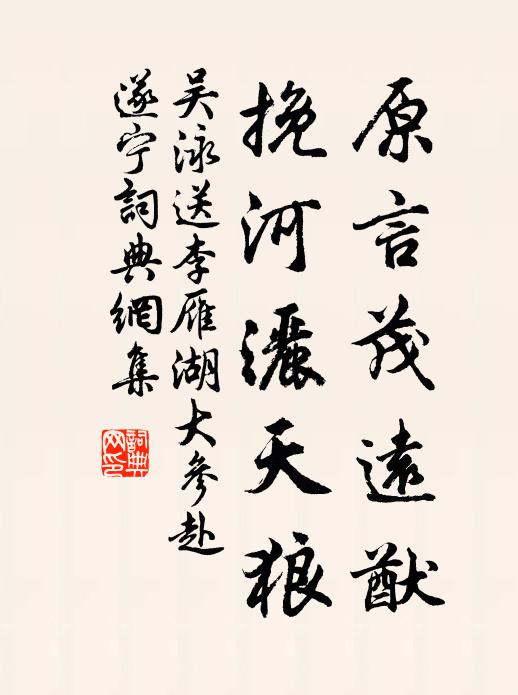 原言茂遠猷
挽河灑天狼
吴泳送李雁湖大參赴
遂宁詞典網集
詞典網印